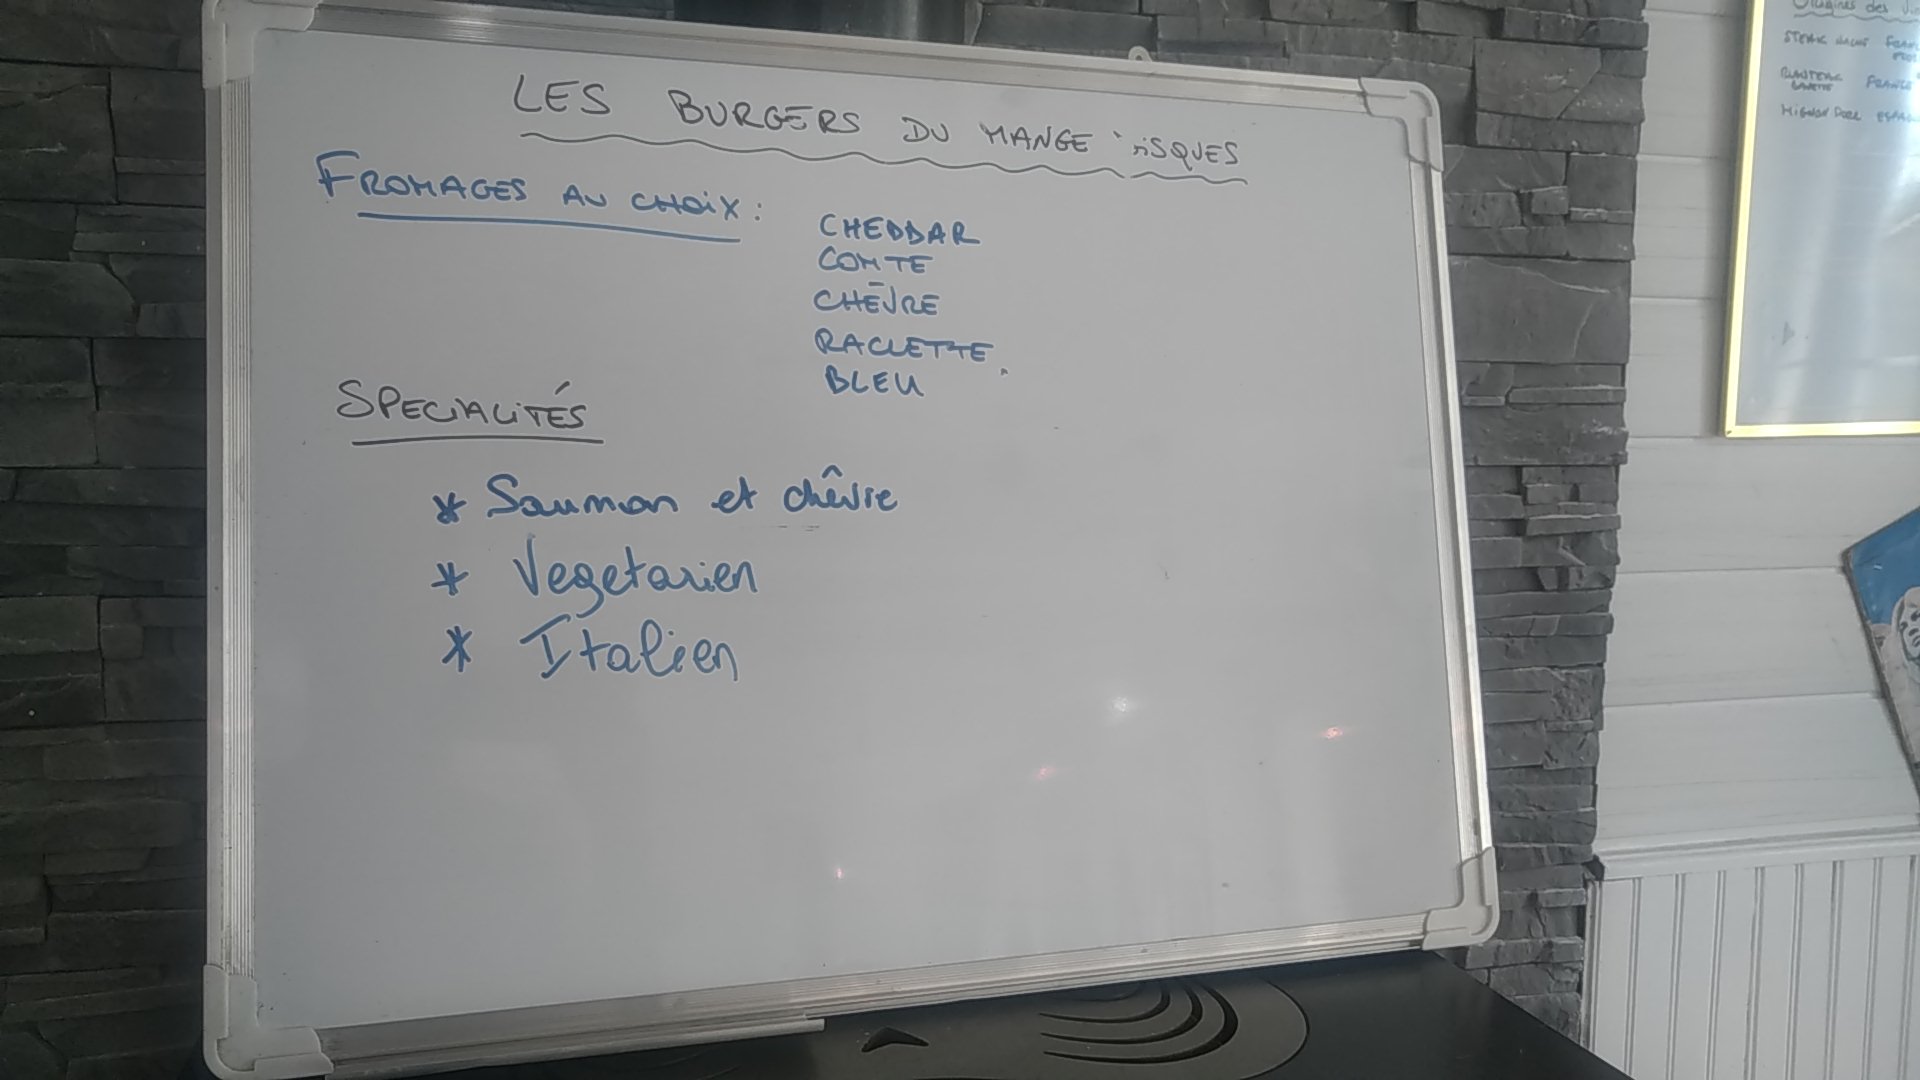 LES BURGERS DU MANGE 'RISQUES
FROMAGES AU CHOIX :
CHEDDAR
COMTE
CHÈVRE
RACLETTE
BLEU
SPECIALITÉS
* Saumon et chêvre
* Vegetarien
* Italien
Origines des
STEAK HACHÉ
FRANCE
MIGNON PORC